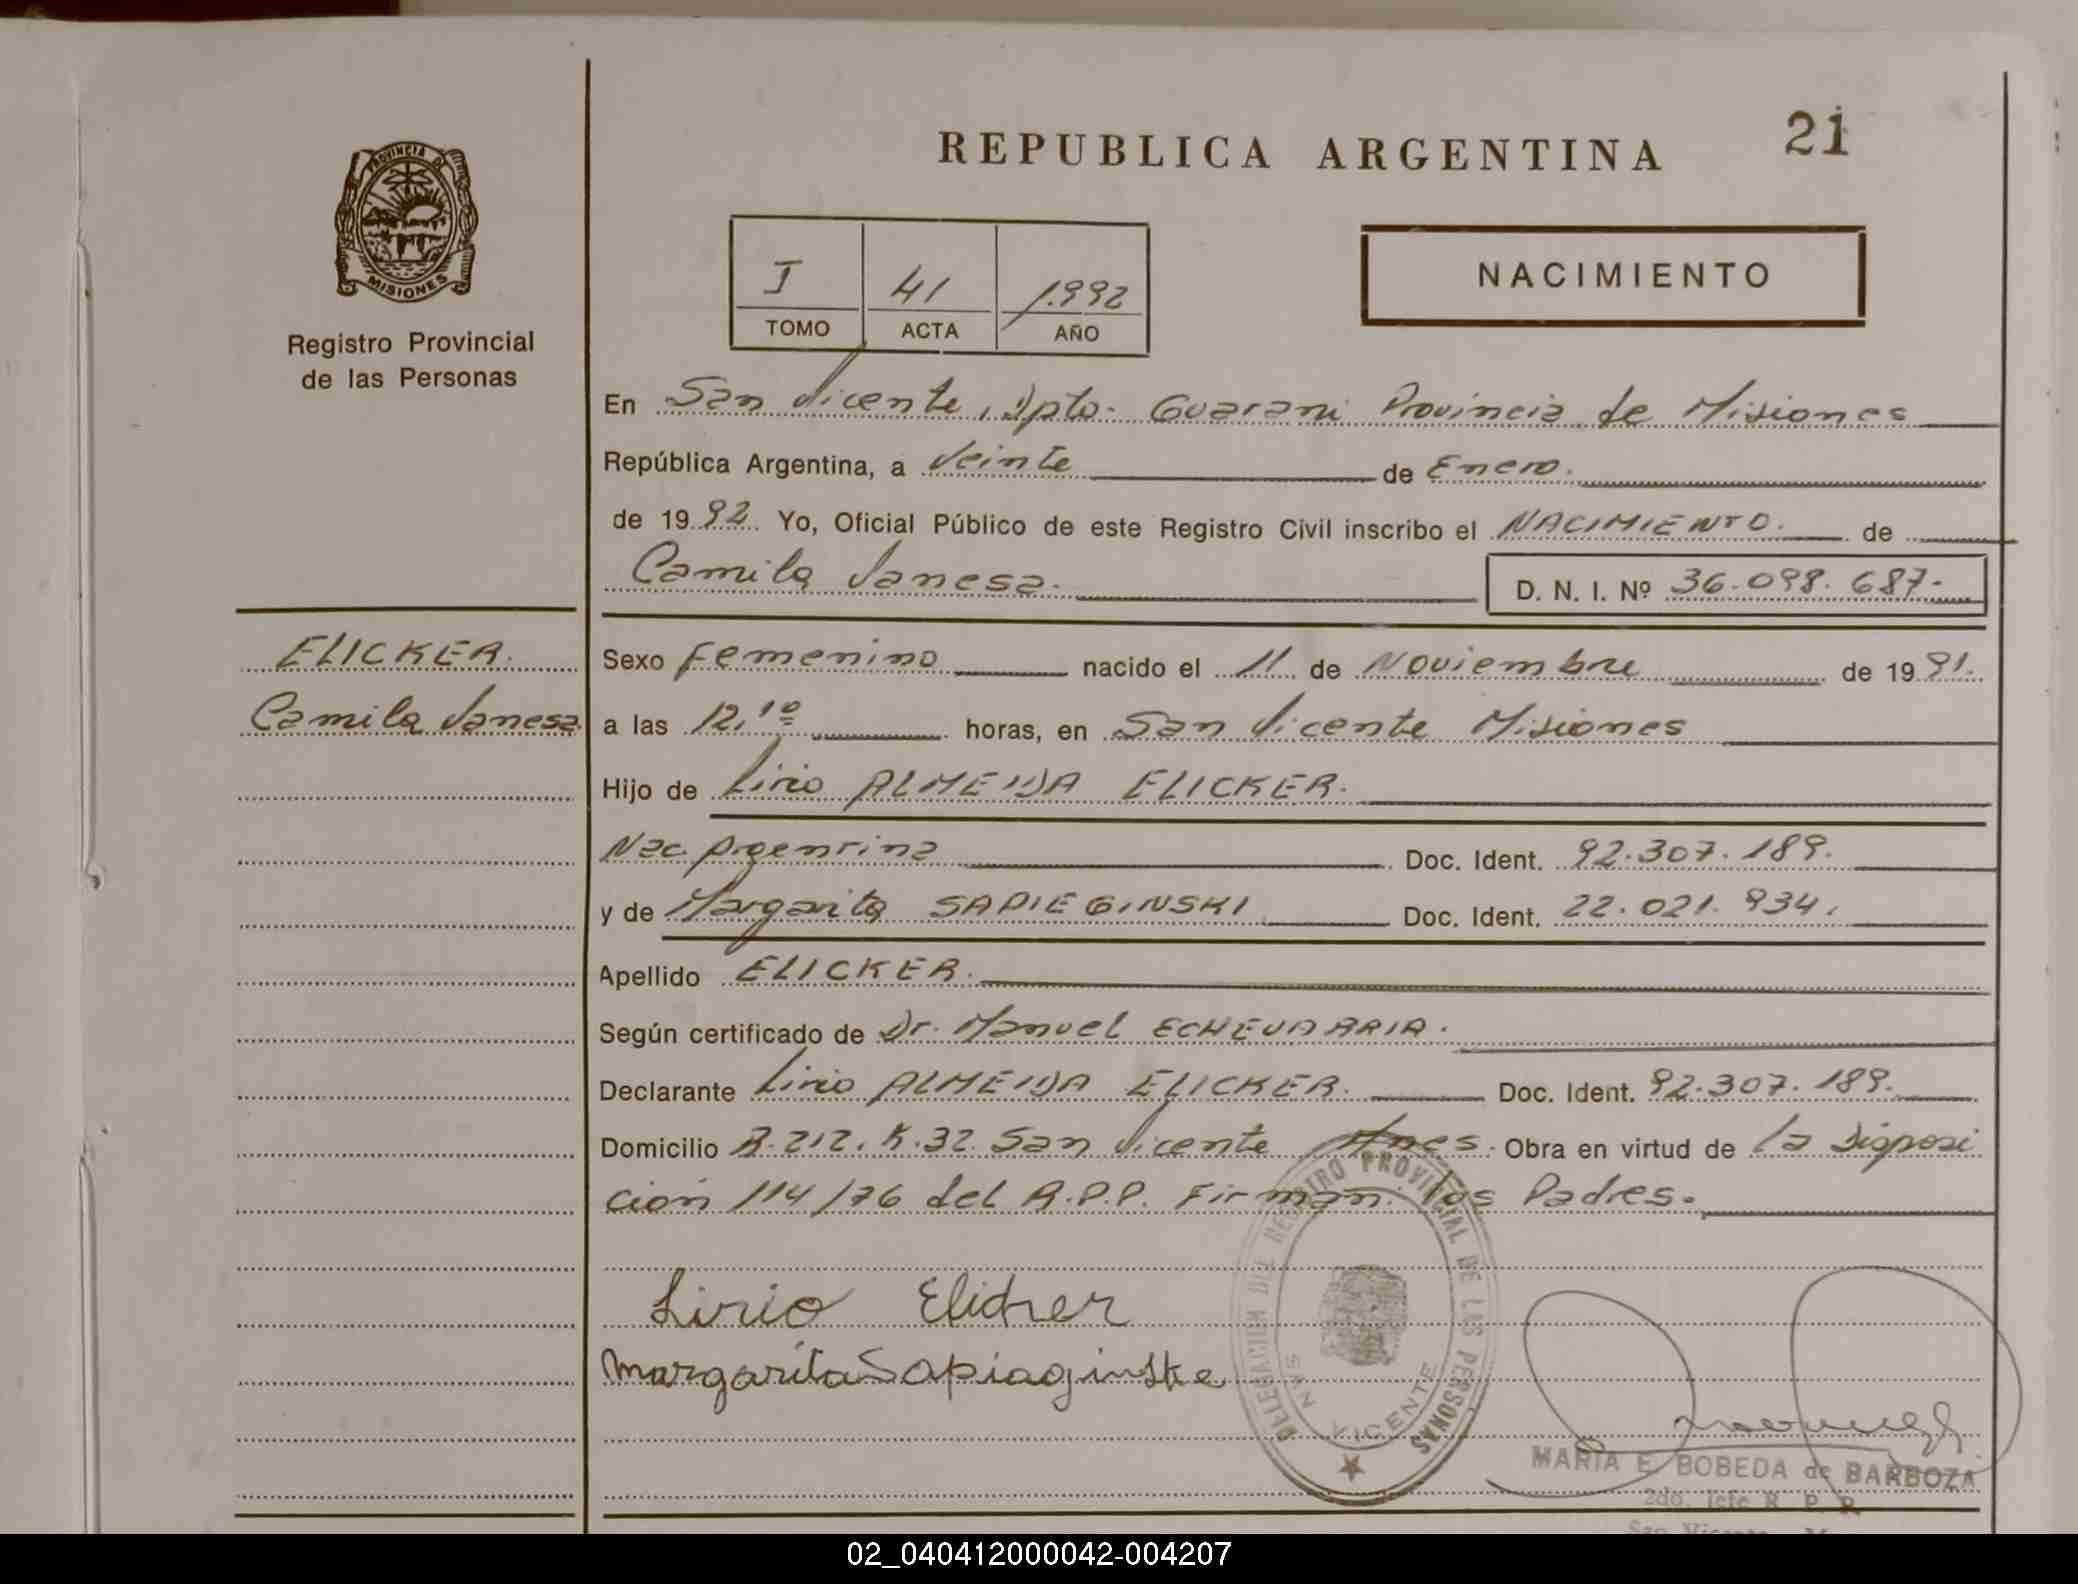 REPUBLICA ARGENTINA 21
PROVINCIA DE
MISIONES
Registro Provincial
de las Personas
I 41 1.992
TOMO ACTA AÑO
NACIMIENTO
En San Vicente, Dpto. Guarani Provincia de Misiones
República Argentina, a Veinte de Enero.
de 1992. Yo, Oficial Público de este Registro Civil inscribo el NACIMIENTO. de
Camila Vanesa. D. N. I. Nº 36.098.687.-
ELICKER.
Camila Vanesa
Sexo Femenino nacido el 11 de Noviembre de 1991.
a las 12,10 horas, en San Vicente Misiones
Hijo de Lirio ALMEIDA ELICKER.
Nac. Argentina Doc. Ident. 92.307.189.
y de Margarita SAPIEGINSKI Doc. Ident. 22.021.934.
Apellido ELICKER.
Según certificado de Dr. Manuel ECHEVARRIA.
Declarante Lirio ALMEIDA ELICKER. Doc. Ident. 92.307.189.
Domicilio R.212. K.32 San Vicente Mnes. Obra en virtud de la Disposi
ción 114/76 del R.P.P. Firman los Padres.
Lirio Elicker
Margarita Sapiaginske
DELEGACION DEL REGISTRO PROVINCIAL DE LAS PERSONAS
SAN VICENTE
MARIA E. BOBEDA de BARBOZA
2do. Jefe R. P. P.
San Vicente
02_040412000042-004207